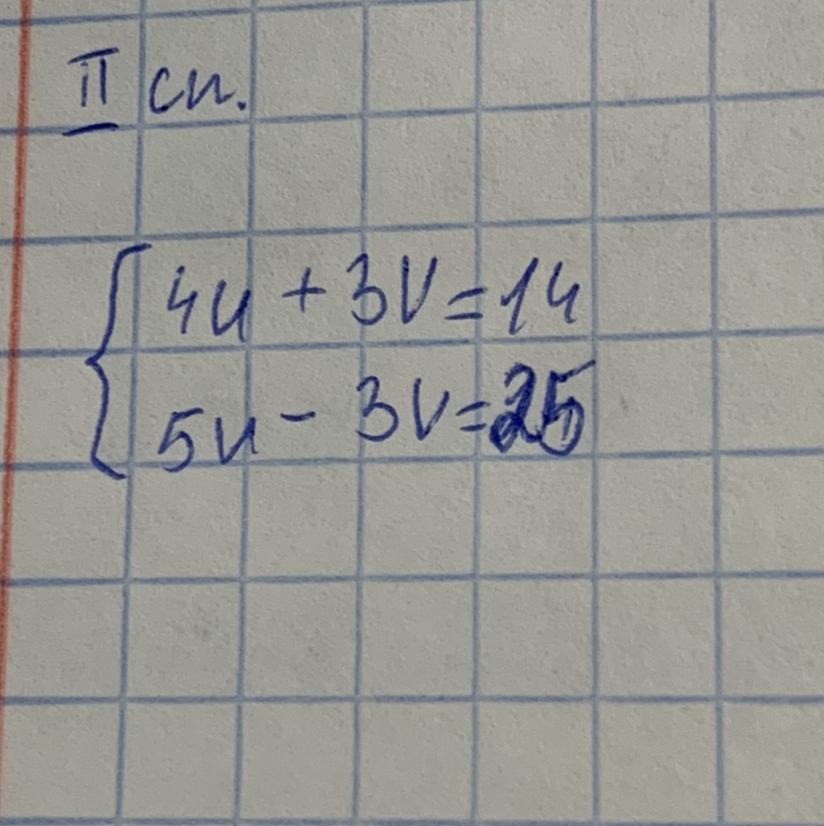 II сп.
4u + 3v = 14
5u - 3v = 25